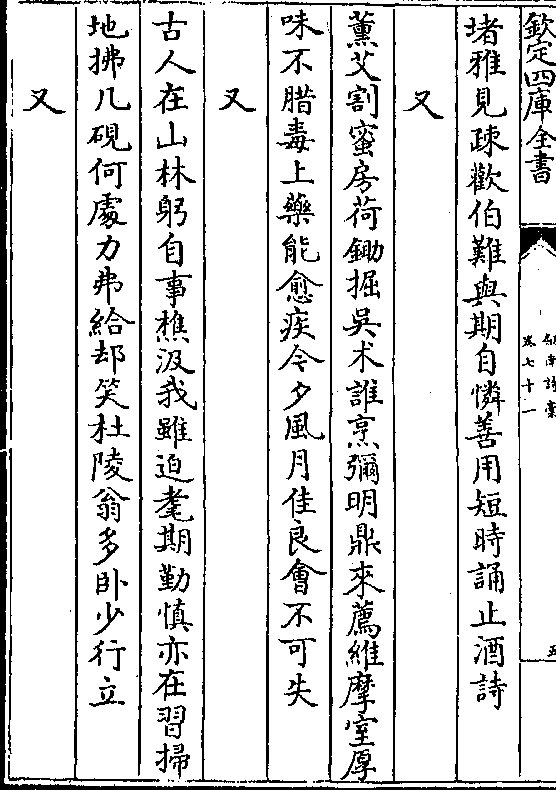 欽定四庫全書
劍南詩稾
卷七十一
五
堵雅見疎歡伯難與期自憐善用短時誦止酒詩
又
薰艾割蜜房荷鋤掘吳术誰烹彌明鼎來薦維摩室厚
味不腊毒上藥能愈疾今夕風月佳良會不可失
又
古人在山林躬自事樵汲我雖迫耄期勤慎亦在習掃
地拂几硯何處力弗給却笑杜陵翁多卧少行立
又